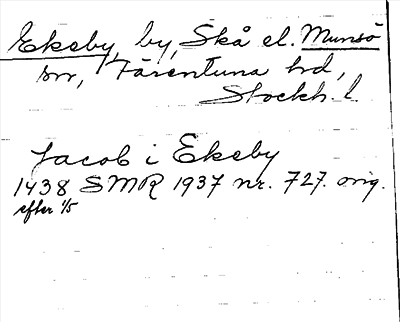 Ekeby, by, Skå el. Munsö
snr, Färentuna hd,
Stockh. l.
Jacob i Ekeby
1438 SMR 1937 nr. 727. orig.
efter 1/5